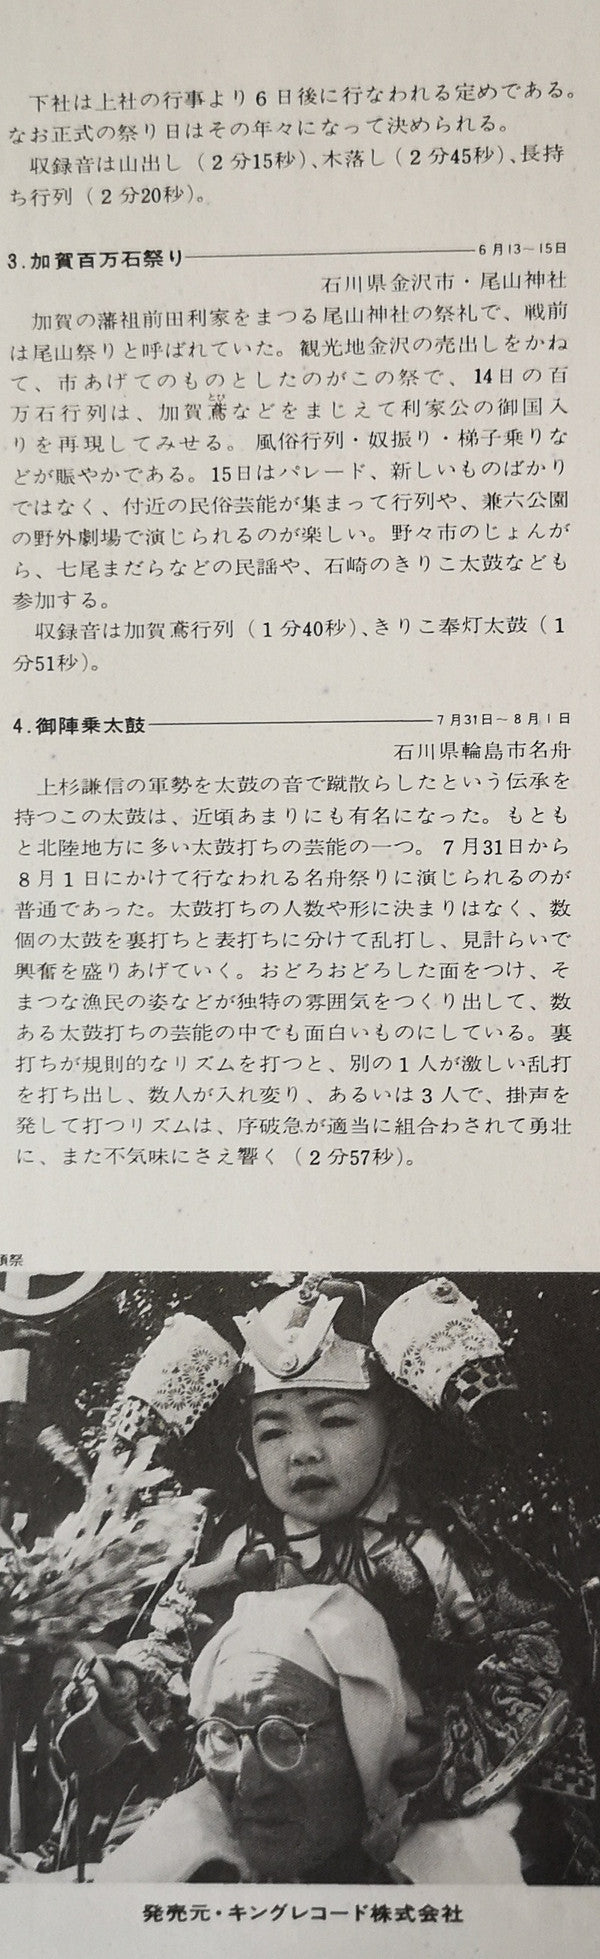 下社は上社の行事より6日後に行なわれる定めである。
なお正式の祭り日はその年々になって決められる。
収録音は山出し（2分15秒）、木落し（2分45秒）、長持
ち行列（2分20秒）。
3.加賀百万石祭り 6月13～15日
石川県金沢市・尾山神社
加賀の藩祖前田利家をまつる尾山神社の祭礼で、戦前
は尾山祭りと呼ばれていた。観光地金沢の売出しをかね
て、市あげてのものとしたのがこの祭で、14日の百
万石行列は、加賀鳶などをまじえて利家公の御国入
りを再現してみせる。風俗行列・奴振り・梯子乗りな
どが賑やかである。15日はパレード、新しいものばかり
ではなく、付近の民俗芸能が集まって行列や、兼六公園
の野外劇場で演じられるのが楽しい。野々市のじょんが
ら、七尾まだらなどの民謡や、石崎のきりこ太鼓なども
参加する。
収録音は加賀鳶行列（1分40秒）、きりこ奉灯太鼓（1
分51秒）。
4.御陣乗太鼓 7月31日～8月1日
石川県輪島市名舟
上杉謙信の軍勢を太鼓の音で蹴散らしたという伝承を
持つこの太鼓は、近頃あまりにも有名になった。もとも
と北陸地方に多い太鼓打ちの芸能の一つ。7月31日から
8月1日にかけて行なわれる名舟祭りに演じられるのが
普通であった。太鼓打ちの人数や形に決まりはなく、数
個の太鼓を裏打ちと表打ちに分けて乱打し、見計らいで
興奮を盛りあげていく。おどろおどろした面をつけ、そ
まつな漁民の姿などが独特の雰囲気をつくり出して、数
ある太鼓打ちの芸能の中でも面白いものにしている。裏
打ちが規則的なリズムを打つと、別の1人が激しい乱打
を打ち出し、数人が入れ変り、あるいは3人で、掛声を
発して打つリズムは、序破急が適当に組合わされて勇壮
に、また不気味にさえ響く（2分57秒）。
祭
発売元・キングレコード株式会社